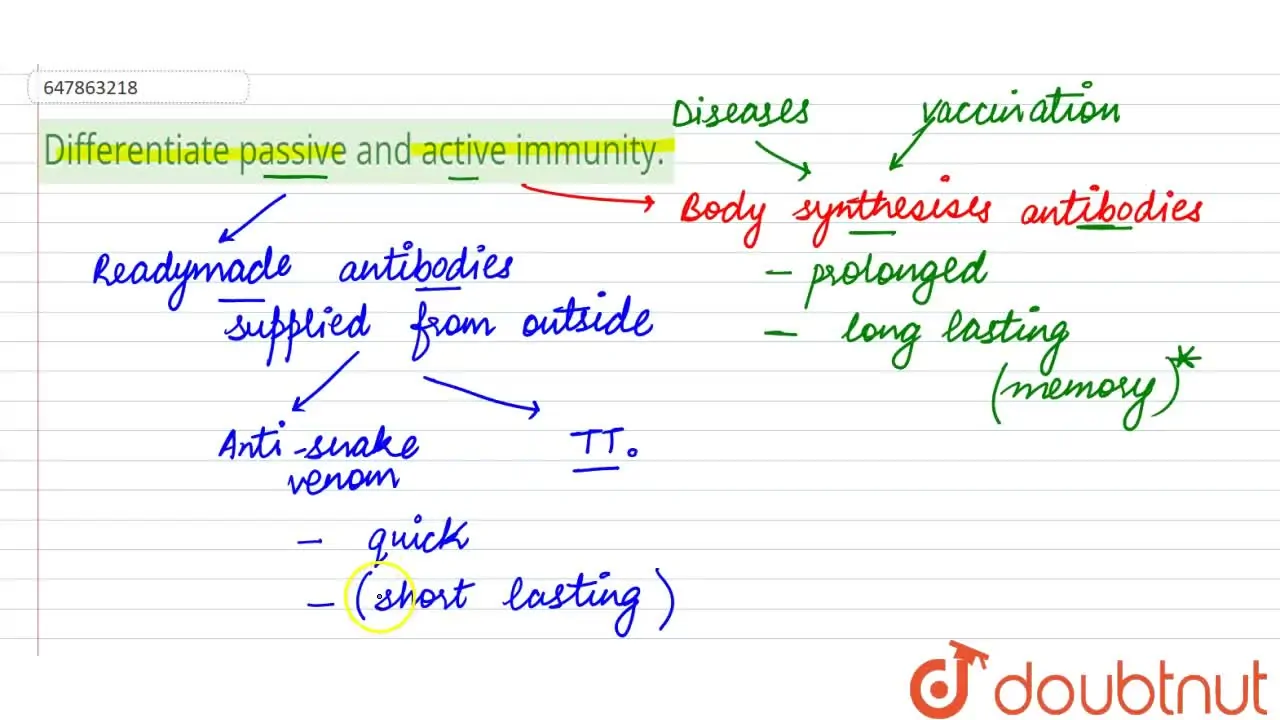 647863218
Differentiate passive and active immunity.
Diseases vaccination
Body synthesises antibodies
- prolonged
- long lasting
(memory)*
Readymade antibodies
supplied from outside
Anti-snake
venom
TT.
- quick
- (short lasting)
doubtnut